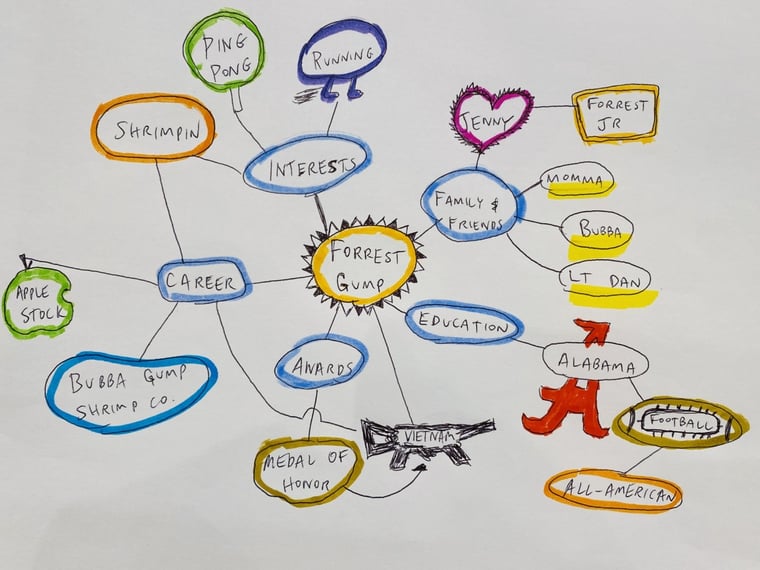 PING
PONG
RUNNING
SHRIMPIN
INTERESTS
JENNY
FORREST
JR
FAMILY &
FRIENDS
MOMMA
BUBBA
LT DAN
FORREST
GUMP
CAREER
APPLE
STOCK
BUBBA GUMP
SHRIMP CO.
AWARDS
EDUCATION
ALABAMA
A
FOOTBALL
ALL-AMERICAN
VIETNAM
MEDAL OF
HONOR